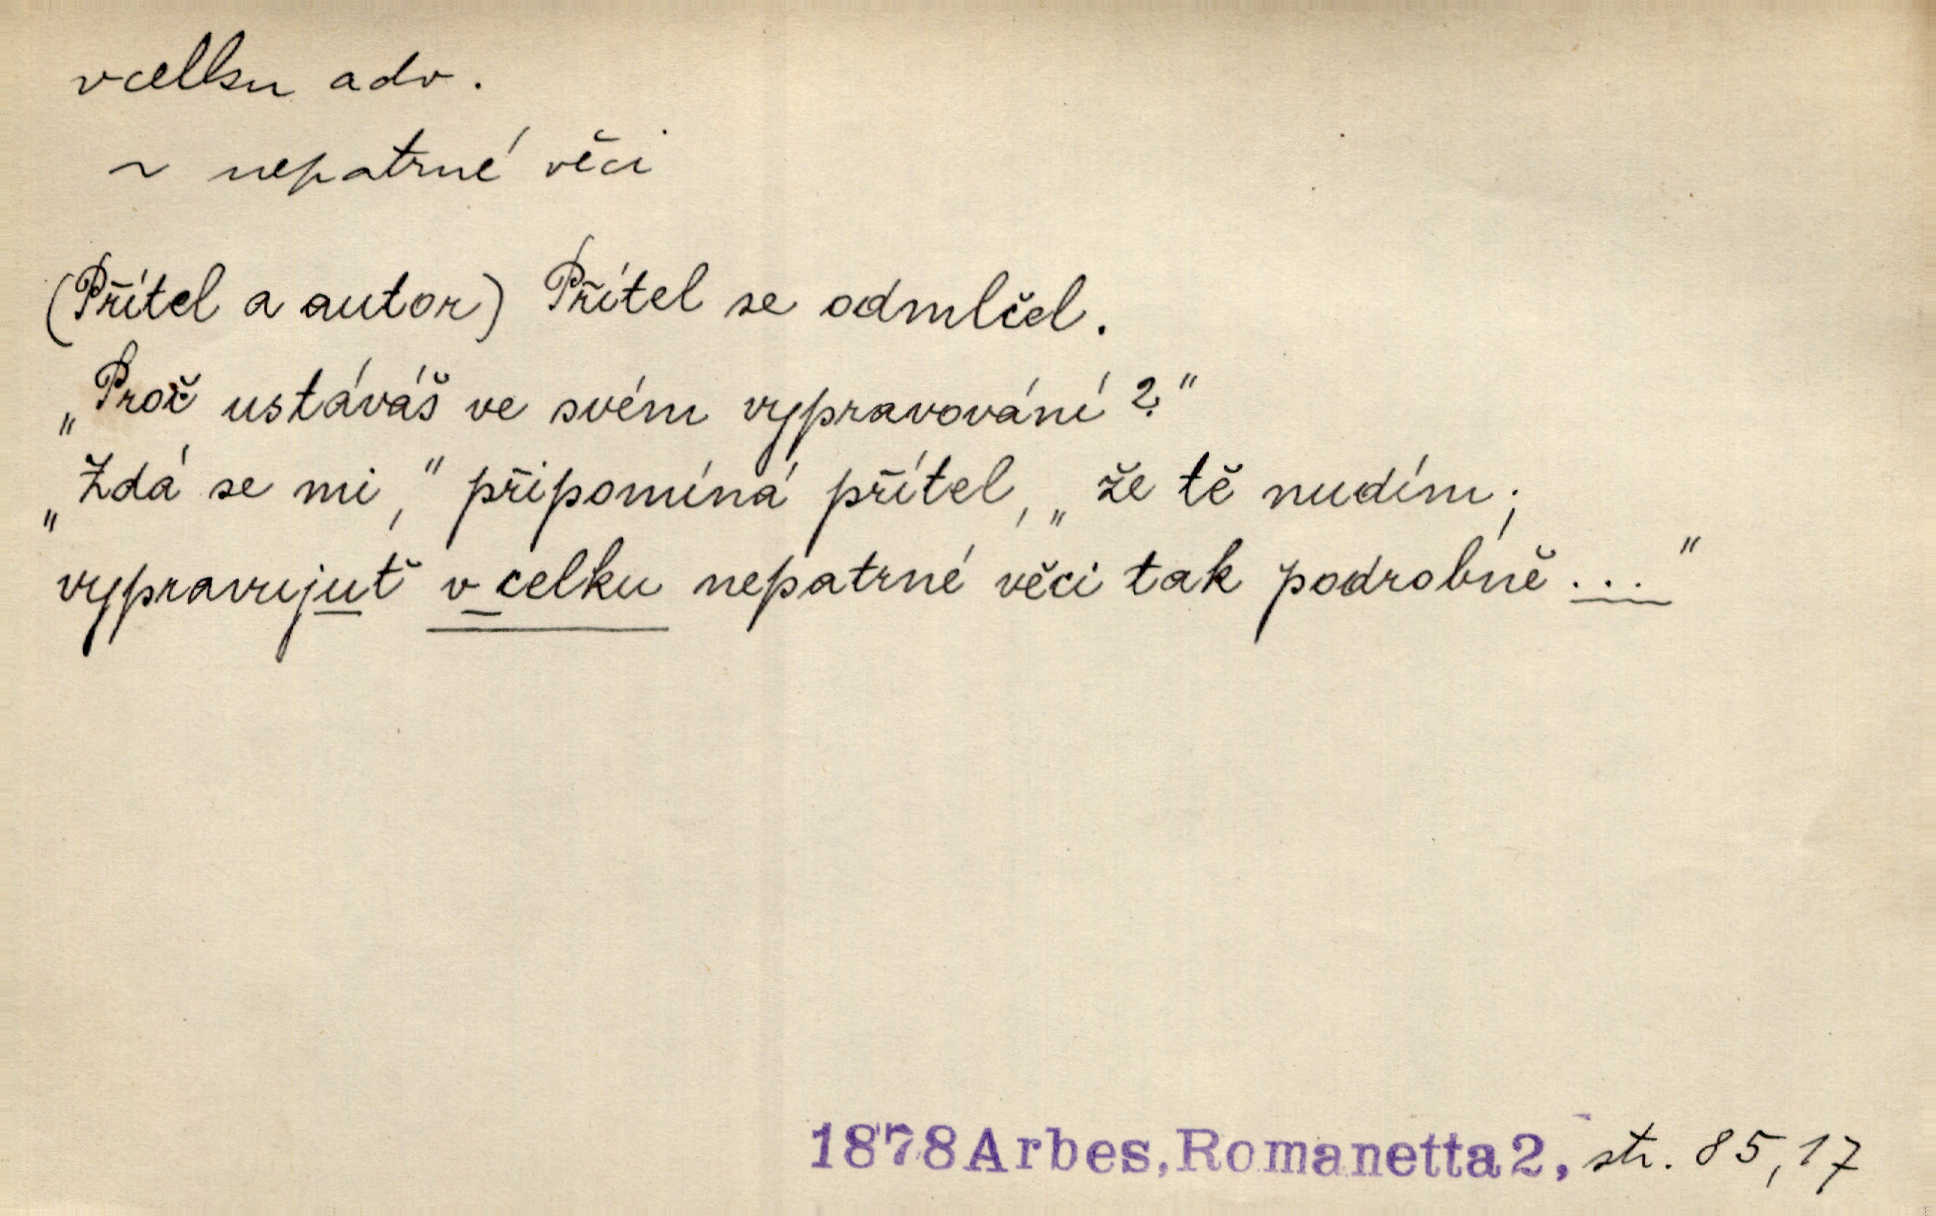 vcelku adv.
~ nepatrné věci
(Přítel a autor) Přítel se odmlčel.
„Proč ustáváš ve svém vypravování?"
„Zdá se mi," připomíná přítel, „že tě nudím;
vypravujuť v celku nepatrné věci tak podrobně..."
1878 Arbes, Romanetta 2, str. 85,17